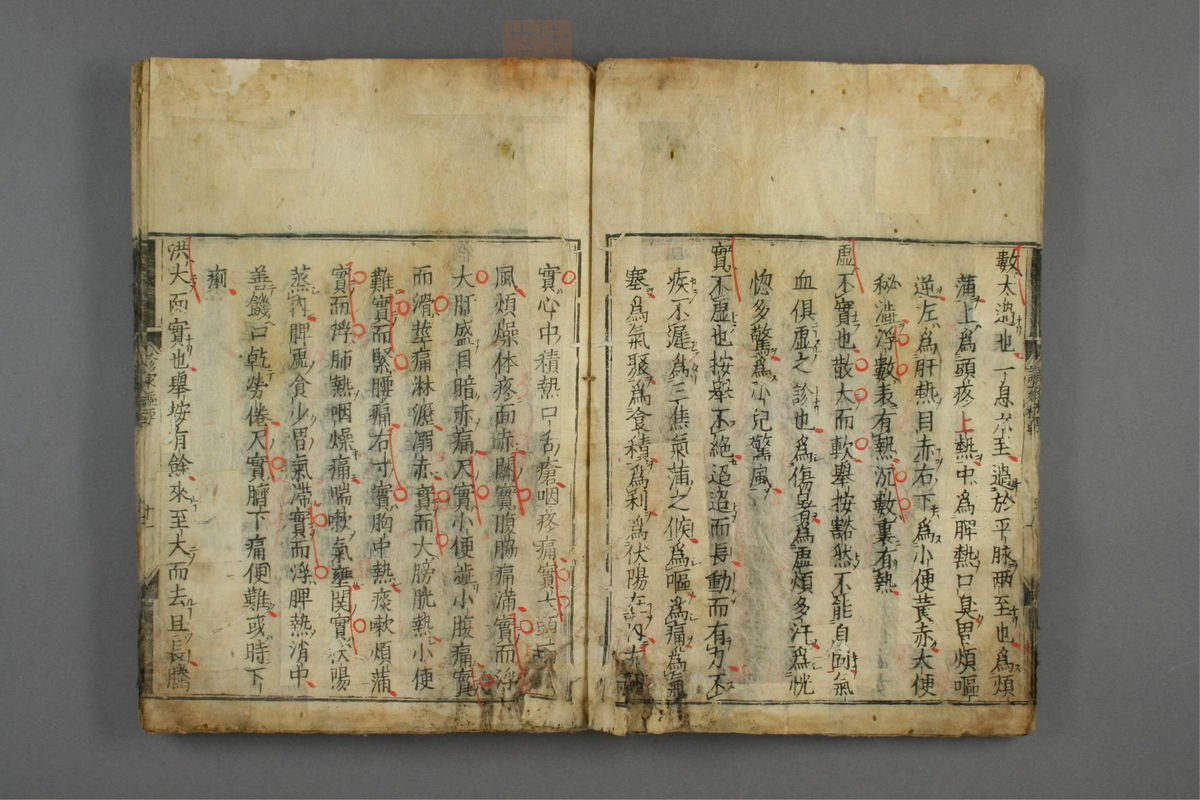 數太過也一息六至過於平脉兩至也爲煩
蒲上爲頭疼上熱中爲脾熱口臭胃煩嘔
逆左爲肝熱目赤右下爲小便黃赤大便
秘澁浮數表有熱沉數裏有熱
虛不實也散大而軟舉按豁然不能自固氣
血俱虛之診也爲傷暑爲虛煩多汗爲恍
惚多驚爲小兒驚風
實不虛也按舉不絶迢迢而長動而有力不
疾不遲爲三焦氣蒲之候爲嘔爲痛爲氣
塞爲氣聚爲食積爲利爲伏陽在
實心中積熱口舌瘡咽疼痛實大頭
風煩燥体疼面赤關實腹脇痛滿實而浮
大肝盛目暗赤痛尺實小便澁小腹痛實
而滑莖痛淋瀝溺赤實而大膀胱熱小便
難實而緊腰痛右寸實胸中熱痰嗽煩蒲
實而浮肺熱咽燥痛喘嗽氣壅關實伏陽
蒸內脾虛食少胃氣滯實而浮脾熱消中
善饑口乾勞倦尺實臍下痛便難或時下
痢
洪大而實也舉按有餘來至大而去且長騰